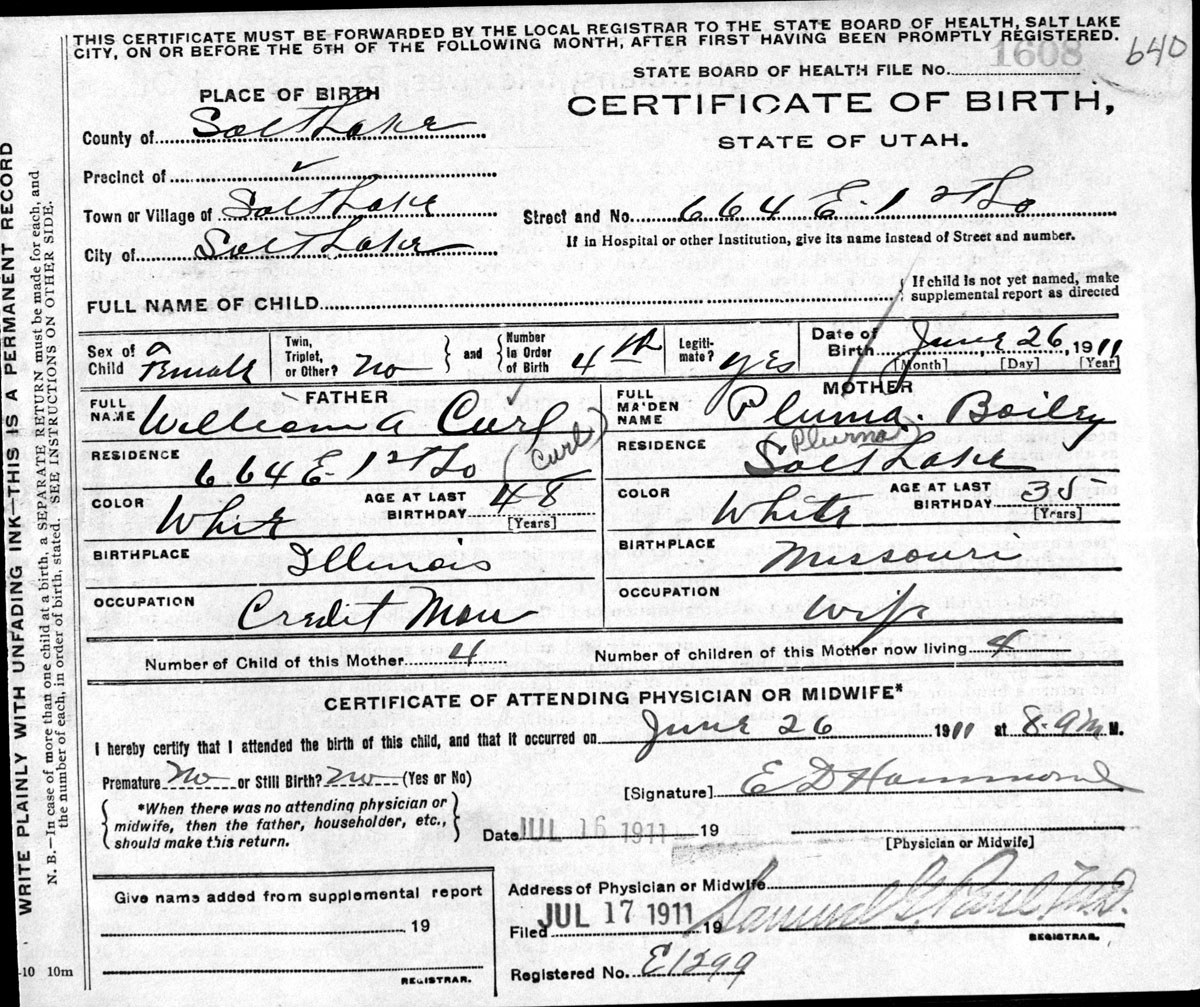 THIS CERTIFICATE MUST BE FORWARDED BY THE LOCAL REGISTRAR TO THE STATE BOARD OF HEALTH, SALT LAKE
CITY, ON OR BEFORE THE 5TH OF THE FOLLOWING MONTH, AFTER FIRST HAVING BEEN PROMPTLY REGISTERED.
1608 640
STATE BOARD OF HEALTH FILE No.
PLACE OF BIRTH
CERTIFICATE OF BIRTH,
STATE OF UTAH.
County of Salt Lake
Precinct of
Town or Village of Salt Lake
Street and No. 664 E-1st So
City of Salt Lake
If in Hospital or other Institution, give its name instead of Street and number.
FULL NAME OF CHILD
If child is not yet named, make
supplemental report as directed
Sex of Child Female
Twin, Triplet, or Other? No
and Number In Order of Birth 4th
Legiti-mate? yes
Date of Birth June 26, 1911
[Month] [Day] [Year]
FATHER
FULL NAME William A Curl
RESIDENCE 664 E-1st So (Curl)
COLOR White
AGE AT LAST BIRTHDAY 48
[Years]
BIRTHPLACE Illinois
OCCUPATION Credit Man
MOTHER
FULL MAIDEN NAME Pluma. Bailey
(Pluma)
RESIDENCE Salt Lake
COLOR White
AGE AT LAST BIRTHDAY 35
[Years]
BIRTHPLACE Missouri
OCCUPATION Wife
Number of Child of this Mother 4
Number of children of this Mother now living 4
CERTIFICATE OF ATTENDING PHYSICIAN OR MIDWIFE*
I hereby certify that I attended the birth of this child, and that it occurred on June 26 1911 at 8-9 M.
Premature No or Still Birth? No (Yes or No)
[Signature] E D Hammond
*When there was no attending physician or
midwife, then the father, householder, etc.,
should make this return.
Date JUL 16 1911 19
[Physician or Midwife]
Give name added from supplemental report
19
REGISTRAR.
Address of Physician or Midwife
Filed JUL 17 1911 19 Samuel G Paul M.D.
REGISTRAR.
Registered No. E1299
-10 10m
WRITE PLAINLY WITH UNFADING INK—THIS IS A PERMANENT RECORD
N. B.—In case of more than one child at a birth, a SEPARATE RETURN must be made for each, and
the number of each, in order of birth, stated. SEE INSTRUCTIONS ON OTHER SIDE.